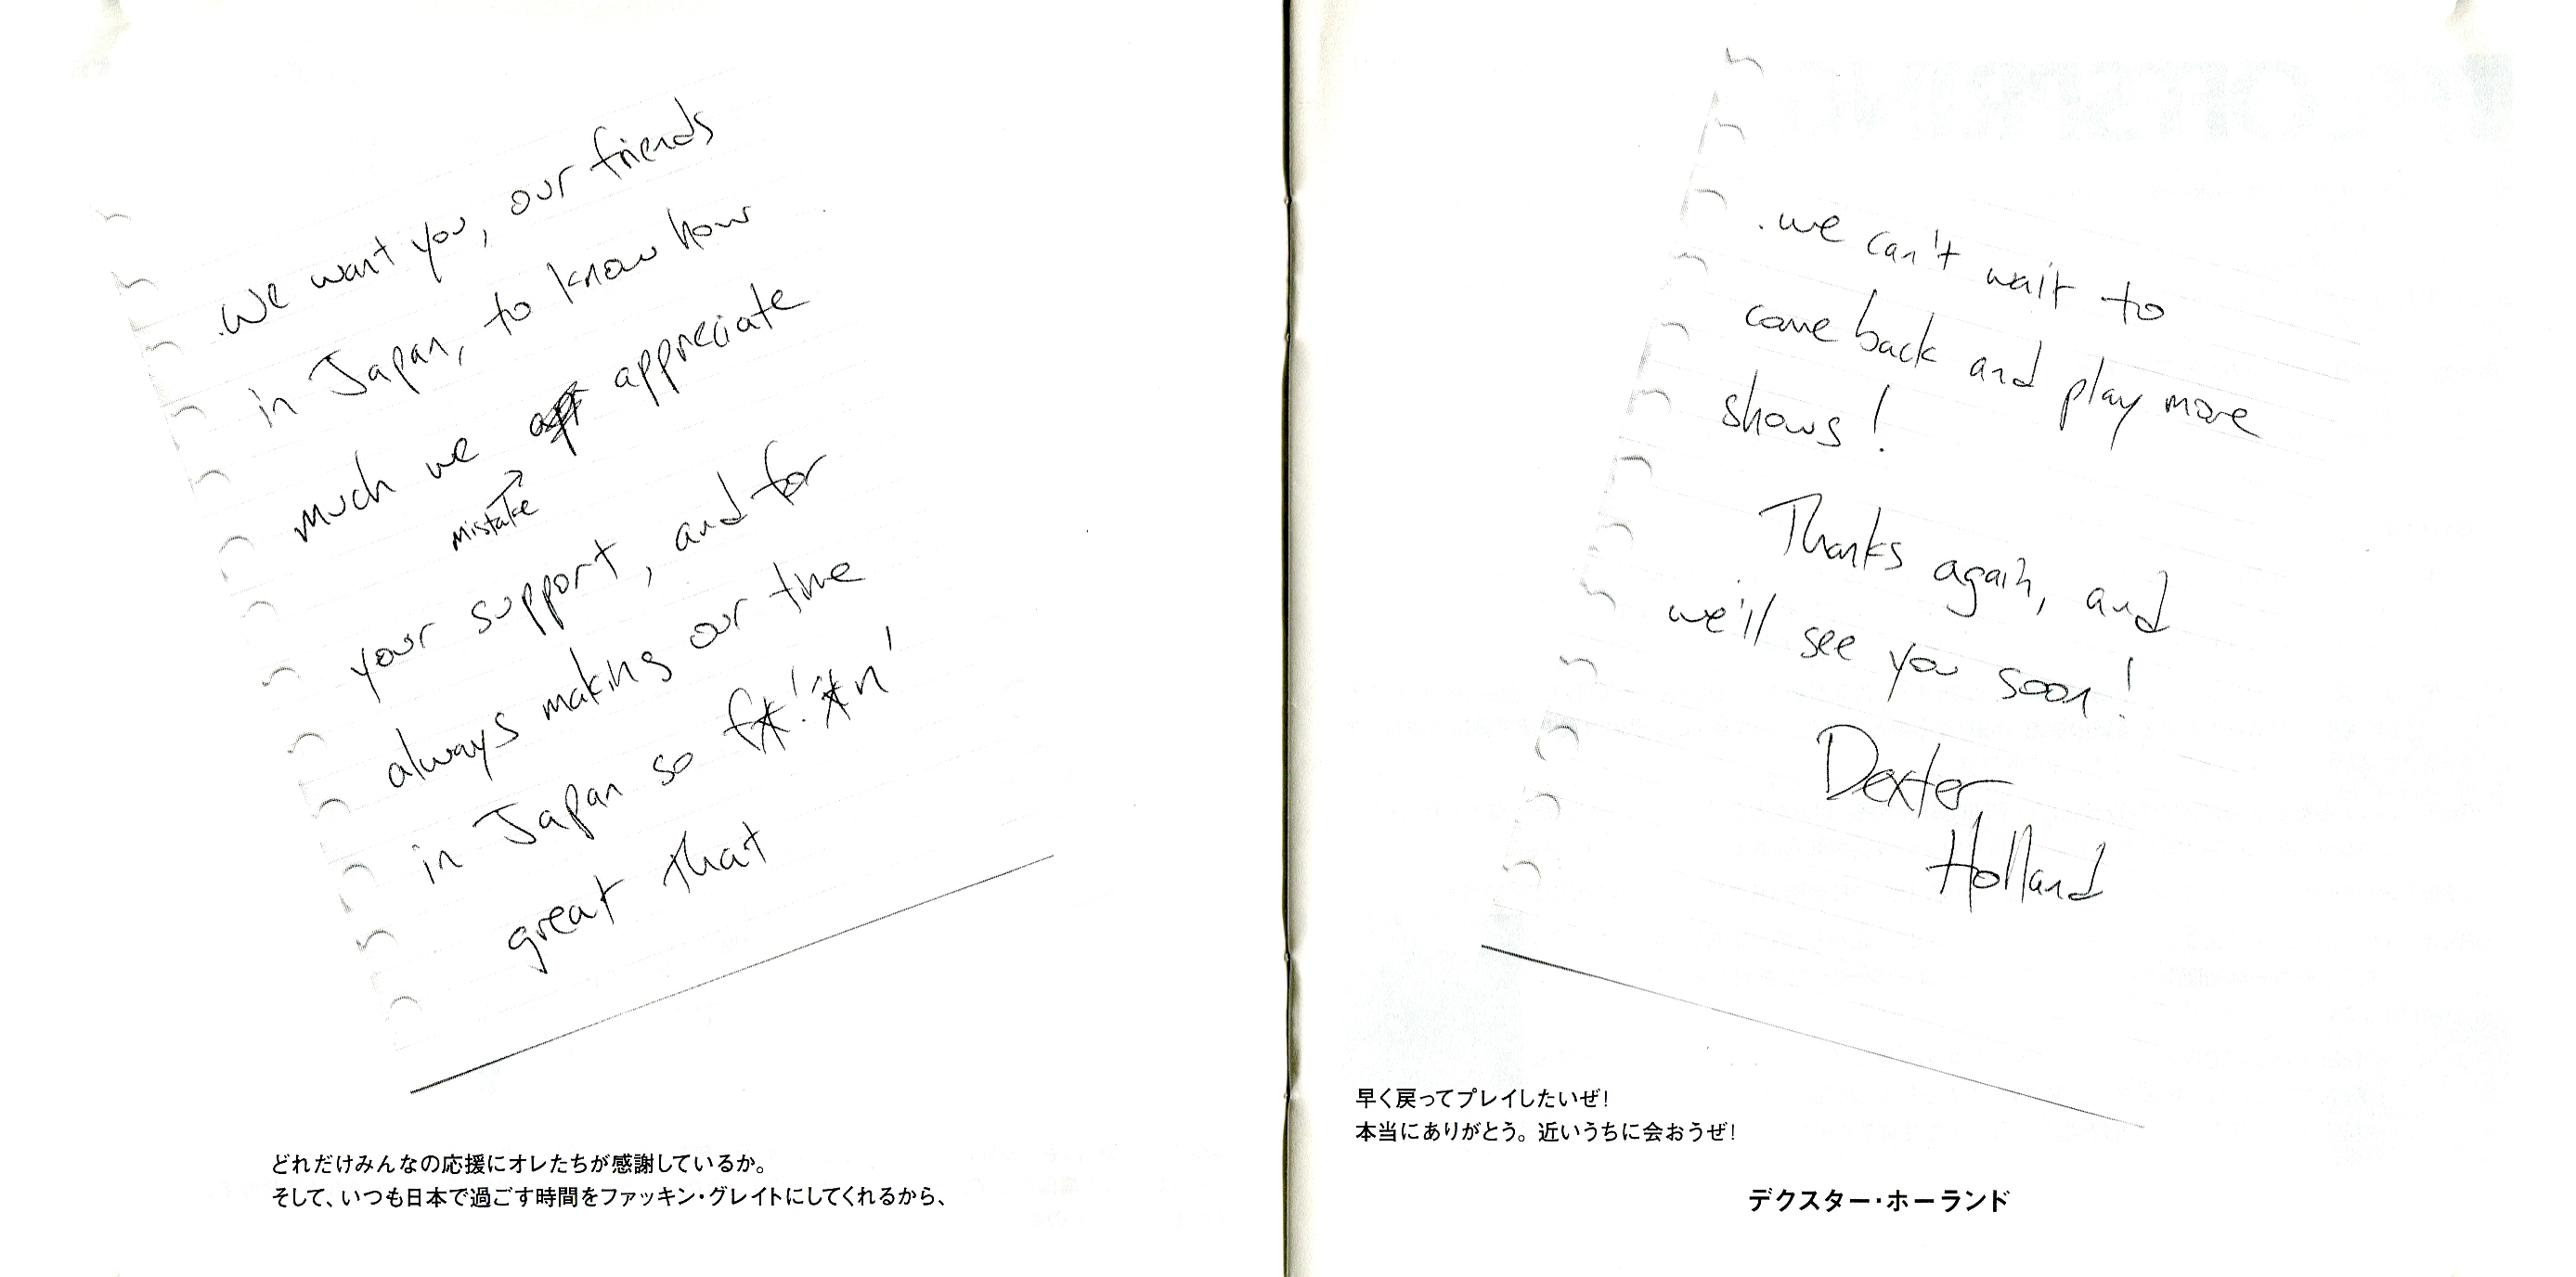 .We want you, our friends
in Japan, to know how
much we app appreciate
mistake
your support, and for
always making our time
in Japan so f*!*n'
great that
どれだけみんなの応援にオレたちが感謝しているか。
そして、いつも日本で過ごす時間をファッキン・グレイトにしてくれるから、
.we can't wait to
come back and play more
shows!
Thanks again, and
we'll see you soon!
Dexter
Holland
早く戻ってプレイしたいぜ!
本当にありがとう。近いうちに会おうぜ!
デクスター・ホーランド